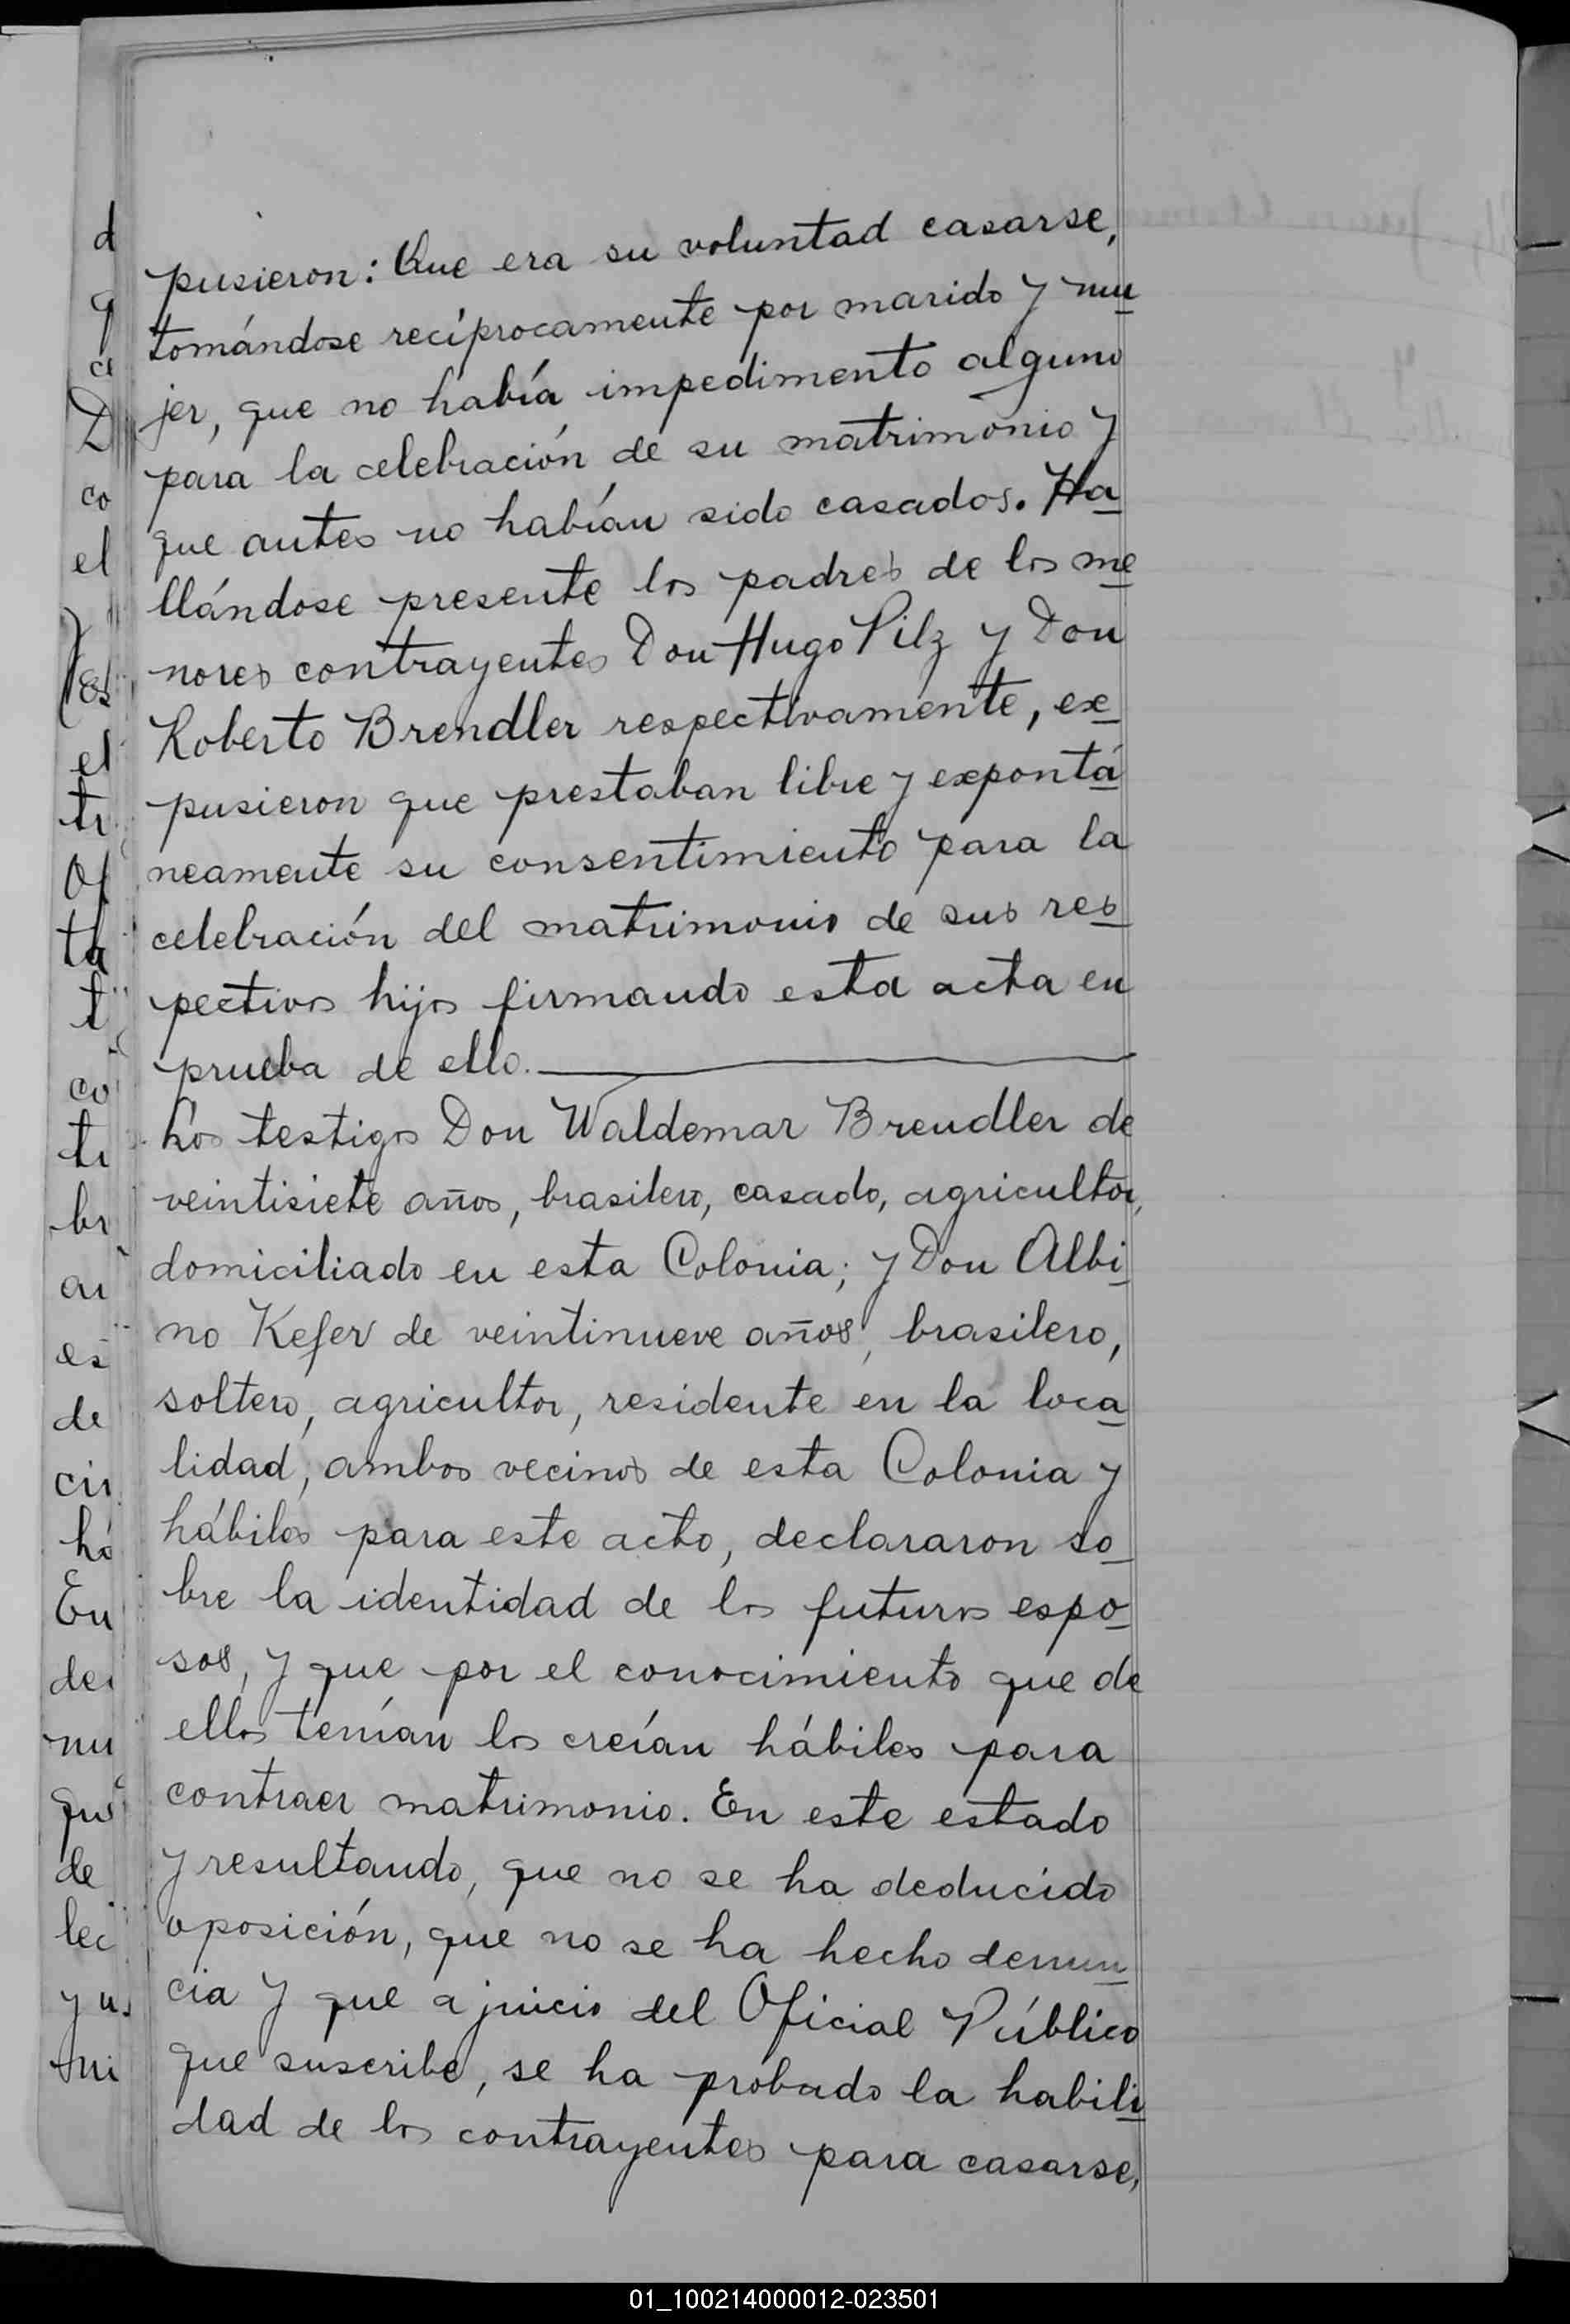 pusieron: Que era su voluntad casarse,
tomándose recíprocamente por marido y mu
jer, que no había impedimento alguno
para la celebración de su matrimonio y
que antes no habían sido casados. Ha
llándose presente los padres de los me
nores contrayentes Don Hugo Pilz y Don
Roberto Brendler respectivamente, ex
pusieron que prestaban libre y expontá
neamente su consentimiento para la
celebración del matrimonio de sus res
pectivos hijos firmando esta acta en
prueba de ello.
Los testigos Don Waldemar Brendler de
veintisiete años, brasilero, casado, agricultor,
domiciliado en esta Colonia; y Don Albi
no Kefer de veintinueve años, brasilero,
soltero, agricultor, residente en la loca
lidad, ambos vecinos de esta Colonia y
hábiles para este acto, declararon so
bre la identidad de los futuros espo
sos, y que por el conocimiento que de
ellos tenían los creían hábiles para
contraer matrimonio. En este estado
y resultando, que no se ha deducido
oposición, que no se ha hecho denun
cia y que a juicio del Oficial Público
que suscribe, se ha probado la habili
dad de los contrayentes para casarse,
01_100214000012-023501